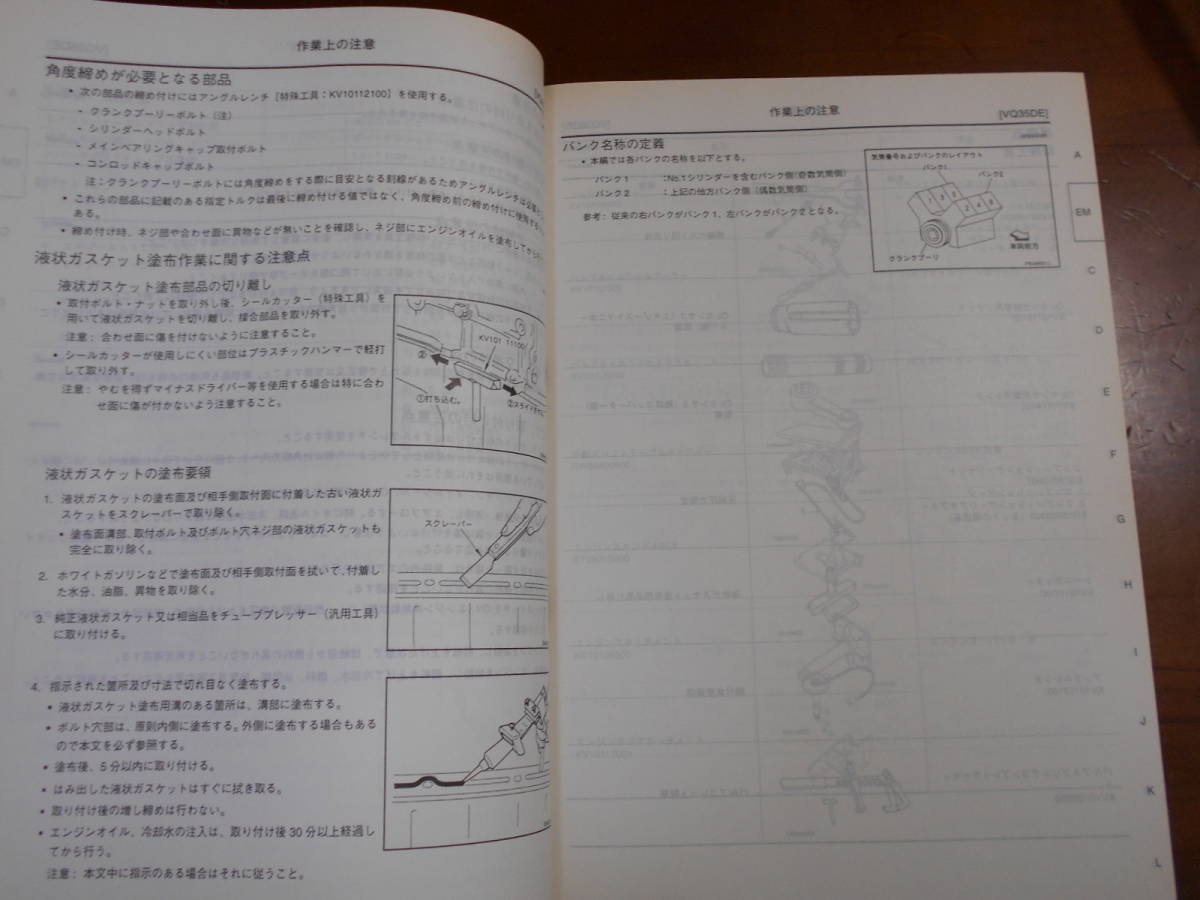 作業上の注意
角度締めが必要となる部品
• 次の部品の締め付けにはアングルレンチ［特殊工具：KV10112100］を使用する。
- クランクプーリーボルト（注）
- シリンダーヘッドボルト
- メインベアリングキャップ取付ボルト
- コンロッドキャップボルト
注：クランクプーリーボルトには角度締めをする際に目安となる刻線があるためアングルレンチは必要
• これらの部品に記載のある指定トルクは最後に締め付ける値ではなく、角度締め前の締め付けに使用する
ある。
• 締め付け時、ネジ部や合わせ面に異物などが無いことを確認し、ネジ部にエンジンオイルを塗布してから
液状ガスケット塗布作業に関する注意点
液状ガスケット塗布部品の切り離し
• 取付ボルト・ナットを取り外し後、シールカッター（特殊工具）を
用いて液状ガスケットを切り離し、接合部品を取り外す。
注意：合わせ面に傷を付けないように注意すること。
• シールカッターが使用しにくい部位はプラスチックハンマーで軽打
して取り外す。
注意：やむを得ずマイナスドライバー等を使用する場合は特に合わ
せ面に傷が付かないよう注意すること。
KV101 11100
②
①打ち込む。
②スライドさせ
液状ガスケットの塗布要領
1. 液状ガスケットの塗布面及び相手側取付面に付着した古い液状ガ
スケットをスクレーパーで取り除く。
• 塗布面溝部、取付ボルト及びボルト穴ネジ部の液状ガスケットも
完全に取り除く。
2. ホワイトガソリンなどで塗布面及び相手側取付面を拭いて、付着し
た水分、油脂、異物を取り除く。
3. 純正液状ガスケット又は相当品をチューブプレッサー（汎用工具）
に取り付ける。
スクレーパー
4. 指示された箇所及び寸法で切れ目なく塗布する。
• 液状ガスケット塗布用溝のある箇所は、溝部に塗布する。
• ボルト穴部は、原則内側に塗布する。外側に塗布する場合もある
ので本文を必ず参照する。
• 塗布後、5分以内に取り付ける。
• はみ出した液状ガスケットはすぐに拭き取る。
• 取り付け後の増し締めは行わない。
• エンジンオイル、冷却水の注入は、取り付け後30分以上経過し
てから行う。
注意：本文中に指示のある場合はそれに従うこと。
作業上の注意
[VQ35DE]
バンク名称の定義
• 本編では各バンクの名称を以下とする。
バンク1 ：No.1シリンダーを含むバンク側（奇数気筒側）
バンク2 ：上記の他方バンク側（偶数気筒側）
参考：従来の右バンクがバンク1、左バンクがバンク2となる。
気筒番号およびバンクのレイアウト
バンク1
バンク2
1 3 5
2 4 6
クランクプーリ
車両前方
A
EM
C
D
E
F
G
H
I
J
K
L